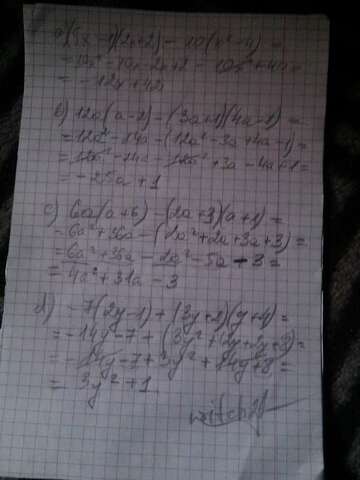 a) (5x-1)(2x+2) - 10(x²-4) =
= 10x² - 10x - 2x + 2 - 10x² + 40 =
= -12x + 42
b) 12a(a-2) - (3a+1)(4a-1) =
= 12a² - 24a - (12a² - 3a + 4a - 1) =
= 12a² - 24a - 12a² + 3a - 4a + 1 =
= -25a + 1
c) 6a(a+6) - (2a+3)(a+1) =
= 6a² + 36a - (2a² + 2a + 3a + 3) =
= 6a² + 36a - 2a² - 5a - 3 =
= 4a² + 31a - 3
d) -7(2y-1) + (3y+2)(y+4) =
= -14y - 7 +
= -14y - 7 + 3y² + 14y + 8 =
= 3y² + 1